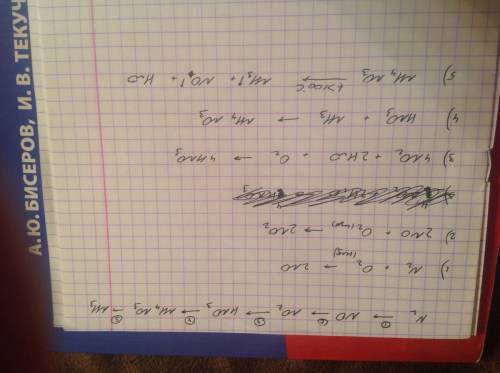 А.Ю. БИСЕРОВ, И. В. ТЕКУЧ
N₂ →① NO →② NO₂ →③ HNO₃ →④ NH₄NO₃ →⑤ NH₃
1) N₂ + O₂ → 2NO
2) 2NO + O₂ → 2NO₂
3) 4NO₂ + 2H₂O + O₂ → 4HNO₃
4) HNO₃ + NH₃ → NH₄NO₃
5) NH₄NO₃ → NH₃↑ + NO₂↑ + H₂O